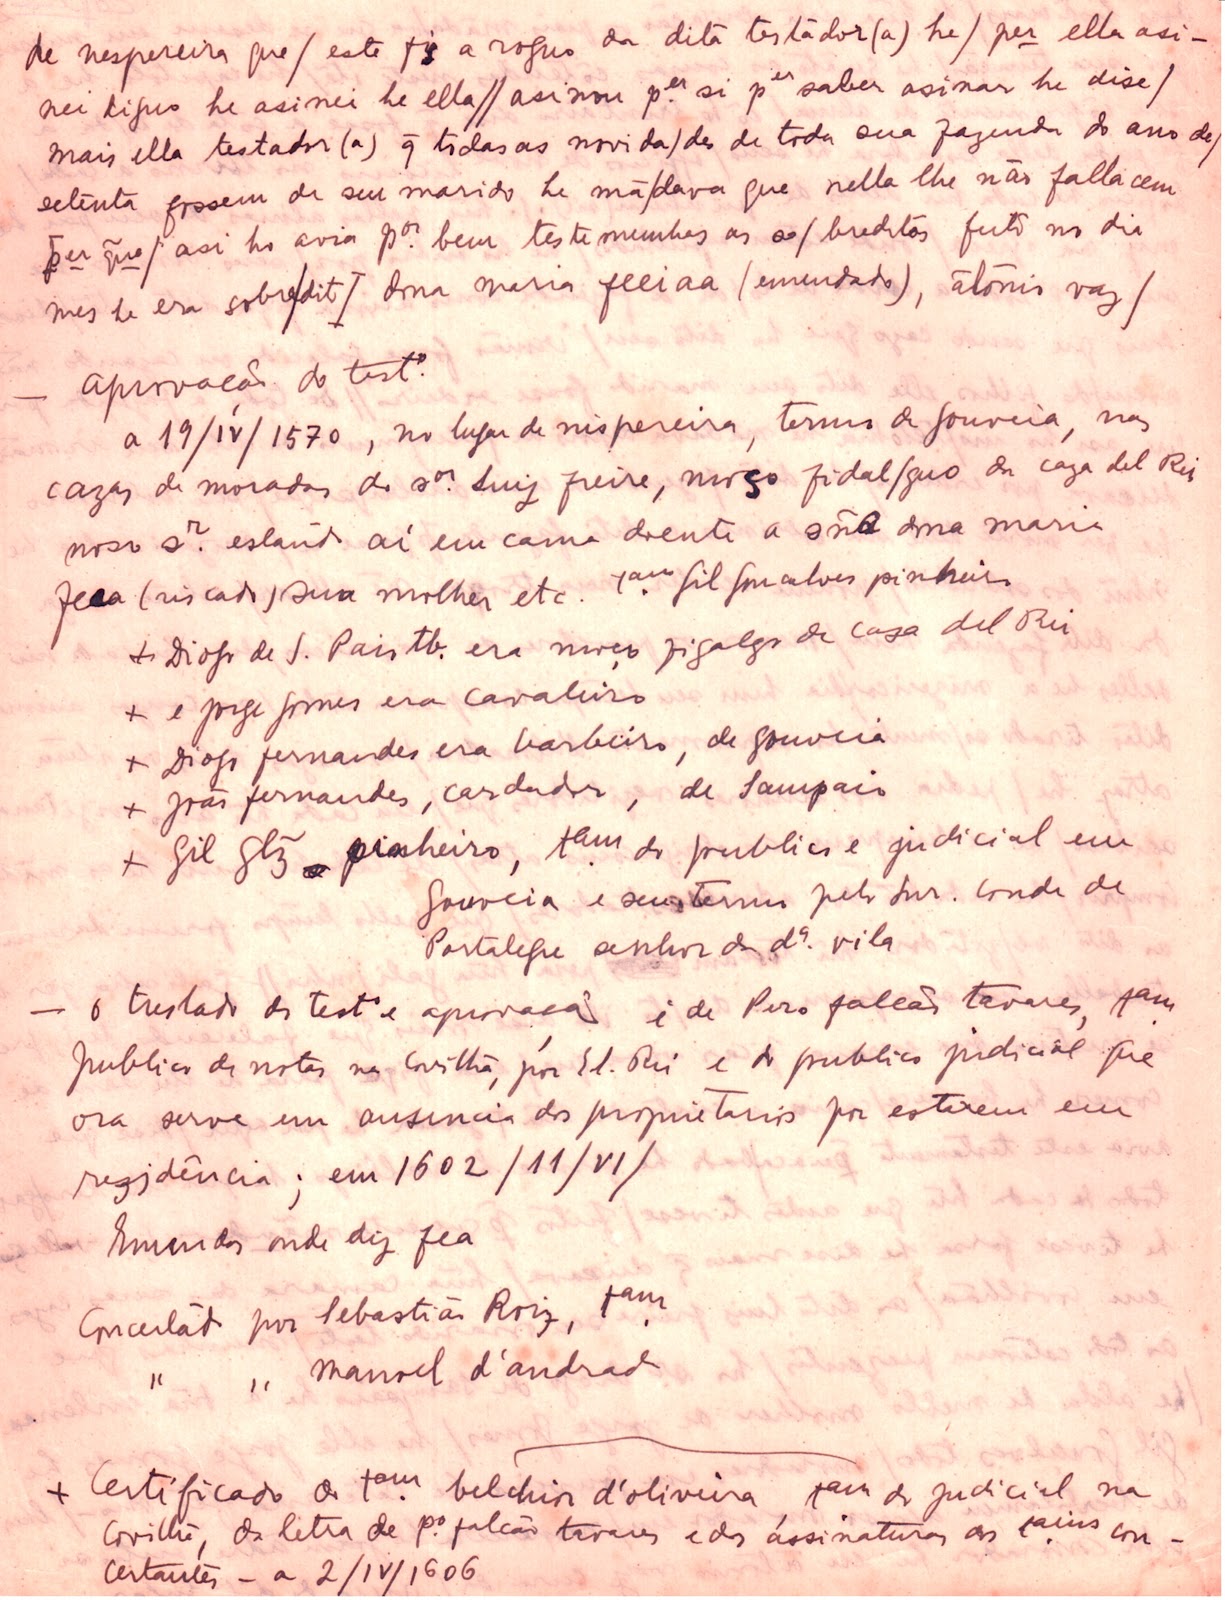 de nespereira que/ este fis a roguo da dita testador(a) he/ per ella asi-
nei diguo he asinei he ella// asinou p.er si per saber asinar he dise/
mais ella testador(a) q̄ todas as novida/des de toda sua fazenda do ano de/
setēnta fossem de seu marido he mā/dava que nella lhe não fallacem
per que/ asi ho avia por. bem testemunhas os so/breditos feito no dia
mes he era sobre/dit/ dona maria feeiaa (emendado), ātónio vaz/
— aprovação do testo.
a 19/IV/1570, no lugar de nispereira, termo de Gouveia, nas
cazas de moradas do sor. Luiz freire, moço fidal/guo da caza del Rei
noso sr. estando aí em cama doente a sñra dona maria
feea (riscado) sua molher etc. tam. Gil Goncalves pinheiro
+ Diogo de S. Paio tb. era moço figalgo da casa del Rei
+ e Jorge Gomes era cavaleiro
+ Diogo fernandes era barbeiro, de Gouveia
+ João fernandes, cardador, de Sampaio
+ Gil Glz̃ pinheiro, tam. do publico e judicial em
Gouveia e seus termos pelo Snr. Conde de
Portalegre senhor da da. vila
— o treslado do testo e aprovação é de Pero falcão tavares, tam.
publico de notas na Covilhã, por El. Rei e do publico judicial que
ora serve em ausencia dos proprietarios por estarem em
rezidência; em 1602/11/VI/
Emendas onde diz fea
Concertado por Sebastião Roiz, tam.
" " Manoel d'andrade
+ Certificado do tam. belchior d'oliveira tam do judicial na
Covilhã, da letra de po. falcão tavares e das assinaturas dos tains. con-
certantes - a 2/IV/1606